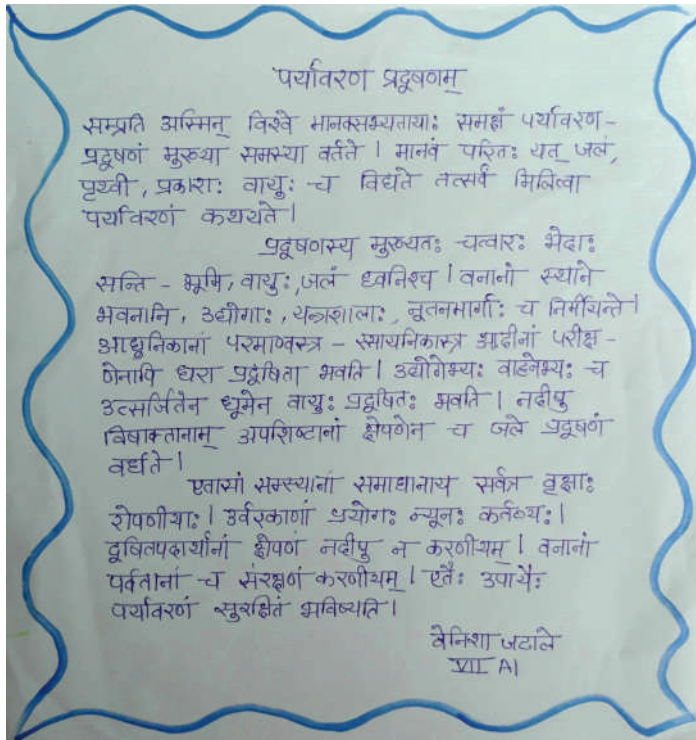 पर्यावरण प्रदूषणम्
सम्प्रति अस्मिन् विश्वे मानवसभ्यतायाः समक्षं पर्यावरण-
प्रदूषणं मुख्या समस्या वर्तते । मानवं परितः यत् जलं,
पृथ्वी, प्रकाशः वायुः च विद्यते तत्सर्वं मिलित्वा
पर्यावरणं कथ्यते ।
प्रदूषणस्य मुख्यतः चत्वारः भेदाः
सन्ति - भूमि, वायुः, जलं ध्वनिश्च । वनानां स्थाने
भवनानि, उद्योगाः, यन्त्रशालाः, नूतनमार्गाः च निर्मीयन्ते ।
आधुनिकानां परमाण्वस्त्र - रसायनिकास्त्र आदीनां परीक्ष-
णेनापि धरा प्रदूषिता भवति । उद्योगेभ्यः वाहनेभ्यः च
उत्सर्जितेन धूमेन वायुः प्रदूषितः भवति । नदीषु
विषाक्तानाम् अपशिष्टानां क्षेपणेन च जले प्रदूषणं
वर्धते ।
एतासां समस्यानां समाधानाय सर्वत्र वृक्षाः
रोपणीयाः । उर्वरकाणां प्रयोगः न्यूनः कर्तव्यः ।
दूषितपदार्थानां क्षेपणं नदीषु न करणीयम् । वनानां
पर्वतानां च संरक्षणं करणीयम् । एतैः उपायैः
पर्यावरणं सुरक्षितं भविष्यति ।
वेनिशा जटाले
VII A1